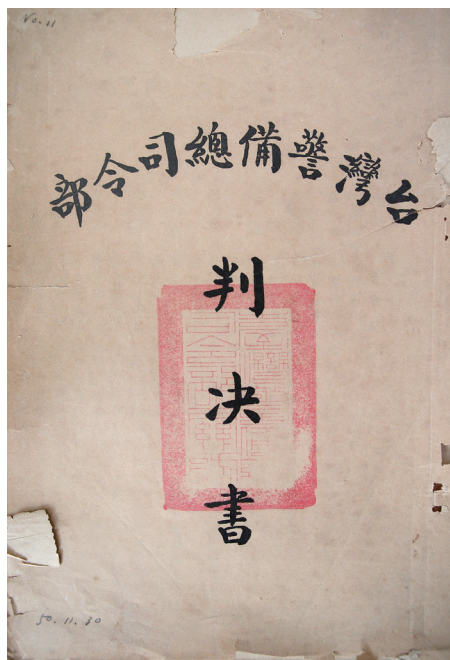 No. 11
台灣警備總司令部
判
决
書
50.11.30